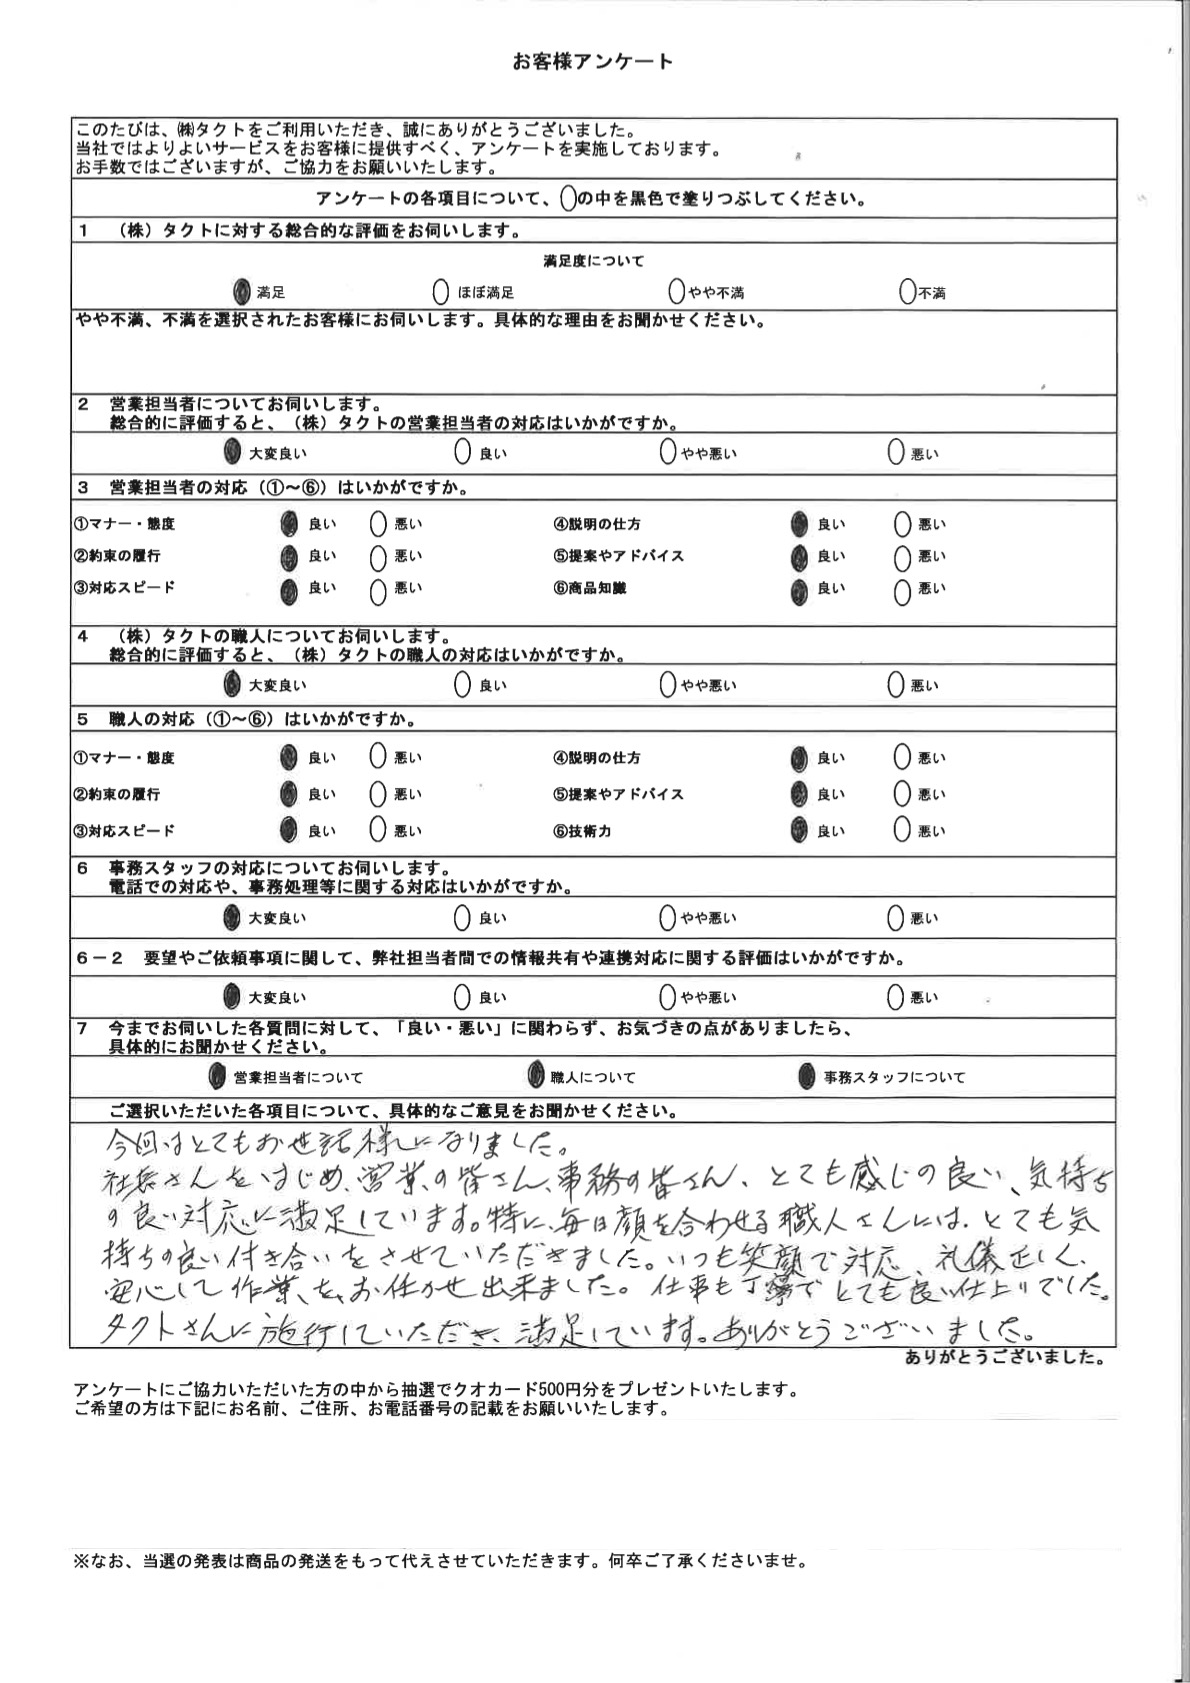 お客様アンケート
このたびは、㈱タクトをご利用いただき、誠にありがとうございました。
当社ではよりよいサービスをお客様に提供すべく、アンケートを実施しております。
お手数ではございますが、ご協力をお願いいたします。
アンケートの各項目について、○の中を黒色で塗りつぶしてください。
1 （株）タクトに対する総合的な評価をお伺いします。
満足度について
●満足 ○ほぼ満足 ○やや不満 ○不満
やや不満、不満を選択されたお客様にお伺いします。具体的な理由をお聞かせください。
2 営業担当者についてお伺いします。
総合的に評価すると、（株）タクトの営業担当者の対応はいかがですか。
●大変良い ○良い ○やや悪い ○悪い
3 営業担当者の対応（①～⑥）はいかがですか。
①マナー・態度 ●良い ○悪い ④説明の仕方 ●良い ○悪い
②約束の履行 ●良い ○悪い ⑤提案やアドバイス ●良い ○悪い
③対応スピード ●良い ○悪い ⑥商品知識 ●良い ○悪い
4 （株）タクトの職人についてお伺いします。
総合的に評価すると、（株）タクトの職人の対応はいかがですか。
●大変良い ○良い ○やや悪い ○悪い
5 職人の対応（①～⑥）はいかがですか。
①マナー・態度 ●良い ○悪い ④説明の仕方 ●良い ○悪い
②約束の履行 ●良い ○悪い ⑤提案やアドバイス ●良い ○悪い
③対応スピード ●良い ○悪い ⑥技術力 ●良い ○悪い
6 事務スタッフの対応についてお伺いします。
電話での対応や、事務処理等に関する対応はいかがですか。
●大変良い ○良い ○やや悪い ○悪い
6－2 要望やご依頼事項に関して、弊社担当者間での情報共有や連携対応に関する評価はいかがですか。
●大変良い ○良い ○やや悪い ○悪い
7 今までお伺いした各質問に対して、「良い・悪い」に関わらず、お気づきの点がありましたら、
具体的にお聞かせください。
●営業担当者について ●職人について ●事務スタッフについて
ご選択いただいた各項目について、具体的なご意見をお聞かせください。
今回はとてもお世話様になりました。
社長さんをはじめ、営業の皆さん、事務の皆さん、とても感じの良い、気持ち
の良い対応に満足しています。特に、毎日顔を合わせる職人さんには、とても気
持ちの良い付き合いをさせていただきました。いつも笑顔で対応、礼儀正しく、
安心して作業を、お任せ出来ました。仕事も丁寧でとても良い仕上りでした。
タクトさんに施行していただき、満足しています。ありがとうございました。
ありがとうございました。
アンケートにご協力いただいた方の中から抽選でクオカード500円分をプレゼントいたします。
ご希望の方は下記にお名前、ご住所、お電話番号の記載をお願いいたします。
※なお、当選の発表は商品の発送をもって代えさせていただきます。何卒ご了承くださいませ。